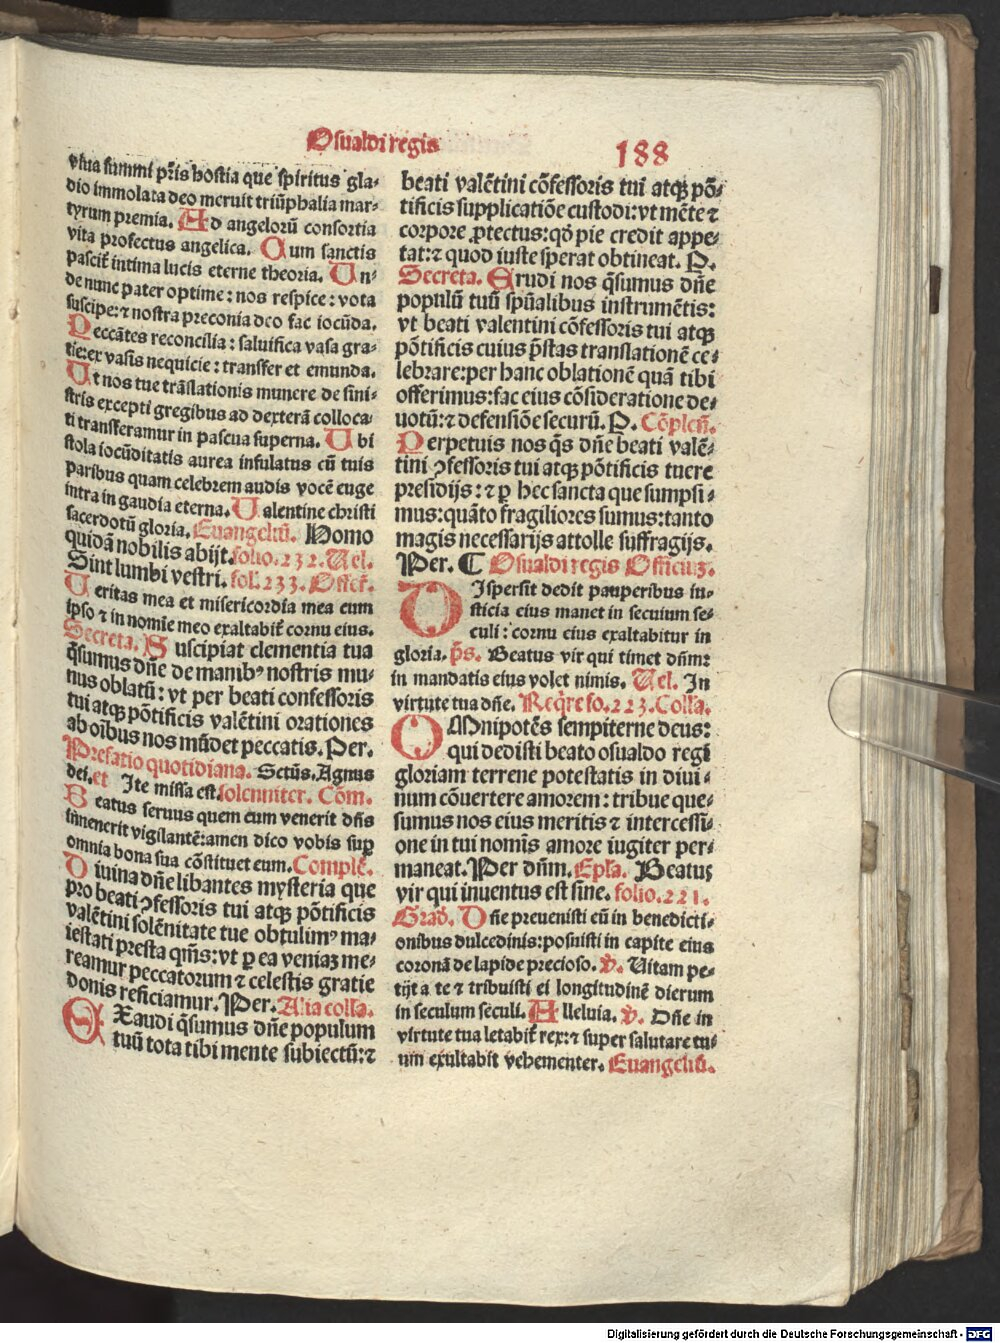 Osualdi regis
188
viua summi pr̃is hostia que spiritus gla⸗
dio immolata deo meruit triũphalia mar⸗
tyrum premia. Ad angelorũ consortia
vita profectus angelica. Cum sanctis
pascit̃ intima lucis eterne theoria. Un⸗
de nunc pater optime: nos respice: vota
suscipe: ⁊ nostra preconia deo fac iocũda.
Peccãtes reconcilia: saluifica vasa gra⸗
tie: ex vasis nequicie: transfer et emunda.
Ut nos tue trãslationis munere de sini⸗
stris excepti gregibus ad dexterã colloca⸗
ti transferamur in pascua superna. Ubi
stola iocũditatis aurea infulatus cũ tuis
paribus quam celebrem audis vocẽ euge
intra in gaudia eterna. Ualentine christi
sacerdotũ gloria. Euangeliũ. Homo
quidã nobilis abijt. folio.232. Uel.
Sint lumbi vestri. fol.233. Offer̃.
Ueritas mea et misericordia mea cum
ipso ⁊ in nomie meo exaltabit̃ cornu eius.
Secreta. Suscipiat clementia tua
q̃sumus dñe de manibꝰ nostris mu⸗
nus oblatũ: vt per beati confessoris
tui atqꝫ põtificis valẽtini orationes
ab oĩbus nos mũdet peccatis. Per.
Prefatio quotidiana. Sctũs. Agnus
dei. et Ite missa est. solenniter. Cõm.
Beatus seruus quem cum venerit dñs
inuenerit vigilantẽ: amen dico vobis suꝑ
omnia bona sua cõstituet eum. Complẽ.
Diuina dñe libantes mysteria que
pro beati ꝯfessoris tui atqꝫ põtificis
valẽtini solẽnitate tue obtulimꝰ ma⸗
iestati presta qm̃s: vt ꝑ ea veniaꝫ me⸗
reamur peccatorum ⁊ celestis gratie
donis reficiamur. Per. Alia colla.
EXaudi q̃sumus dñe populum
tuũ tota tibi mente subiectũ: ⁊
beati valẽtini cõfessoris tui atqꝫ põ⸗
tificis supplicatiõe custodi: vt mẽte ⁊
corpore ꝓtectus: qd̃ pie credit appe⸗
tat: ⁊ quod iuste sperat obtineat. P.
Secreta. Erudi nos q̃sumus dñe
populũ tuũ spũalibus instrumẽtis:
vt beati valentini cõfessoris tui atqꝫ
põtificis cuius p̃stas translationẽ ce⸗
lebrare: per hanc oblationẽ quã tibi
offerimus: fac eius cõsideratione de⸗
uotũ: ⁊ defensiõe securũ. P. Cõpleñ.
Perpetuis nos q̃s dñe beati valẽ⸗
tini ꝯfessoris tui atqꝫ põtificis tuere
presidijs: ⁊ ꝑ hec sancta que sumpsi⸗
mus: quãto fragiliores sumus: tanto
magis necessarijs attolle suffragijs.
Per. ¶ Osualdi regis Officiuꝫ.
DIspersit dedit pauperibus iu⸗
sticia eius manet in seculum se⸗
culi: cornu eius exaltabitur in
gloria. p̃s. Beatus vir qui timet dñm:
in mandatis eius volet nimis. Uel. In
virtute tua dñe. Req̃re fo.223. Colla.
OMnipotẽs sempiterne deus:
qui dedisti beato osualdo regi
gloriam terrene potestatis in diui⸗
num cõuertere amorem: tribue que⸗
sumus nos eius meritis ⁊ intercessi⸗
one in tui nomĩs amore iugiter per⸗
maneat. Per dñm. Epl̃a. Beatus
vir qui inuentus est sine. folio.221.
Grad̃. Dñe preuenisti eũ in benedicti⸗
onibus dulcedinis: posuisti in capite eius
coronã de lapide precioso. ℣. Uitam pe⸗
tijt a te ⁊ tribuisti ei longitudinẽ dierum
in seculum seculi. Alleluia. ℣. Dñe in
virtute tua letabit̃ rex: ⁊ super salutare tu⸗
um exultabit vehementer. Euangeliũ.
Digitalisierung gefördert durch die Deutsche Forschungsgemeinschaft - DFG